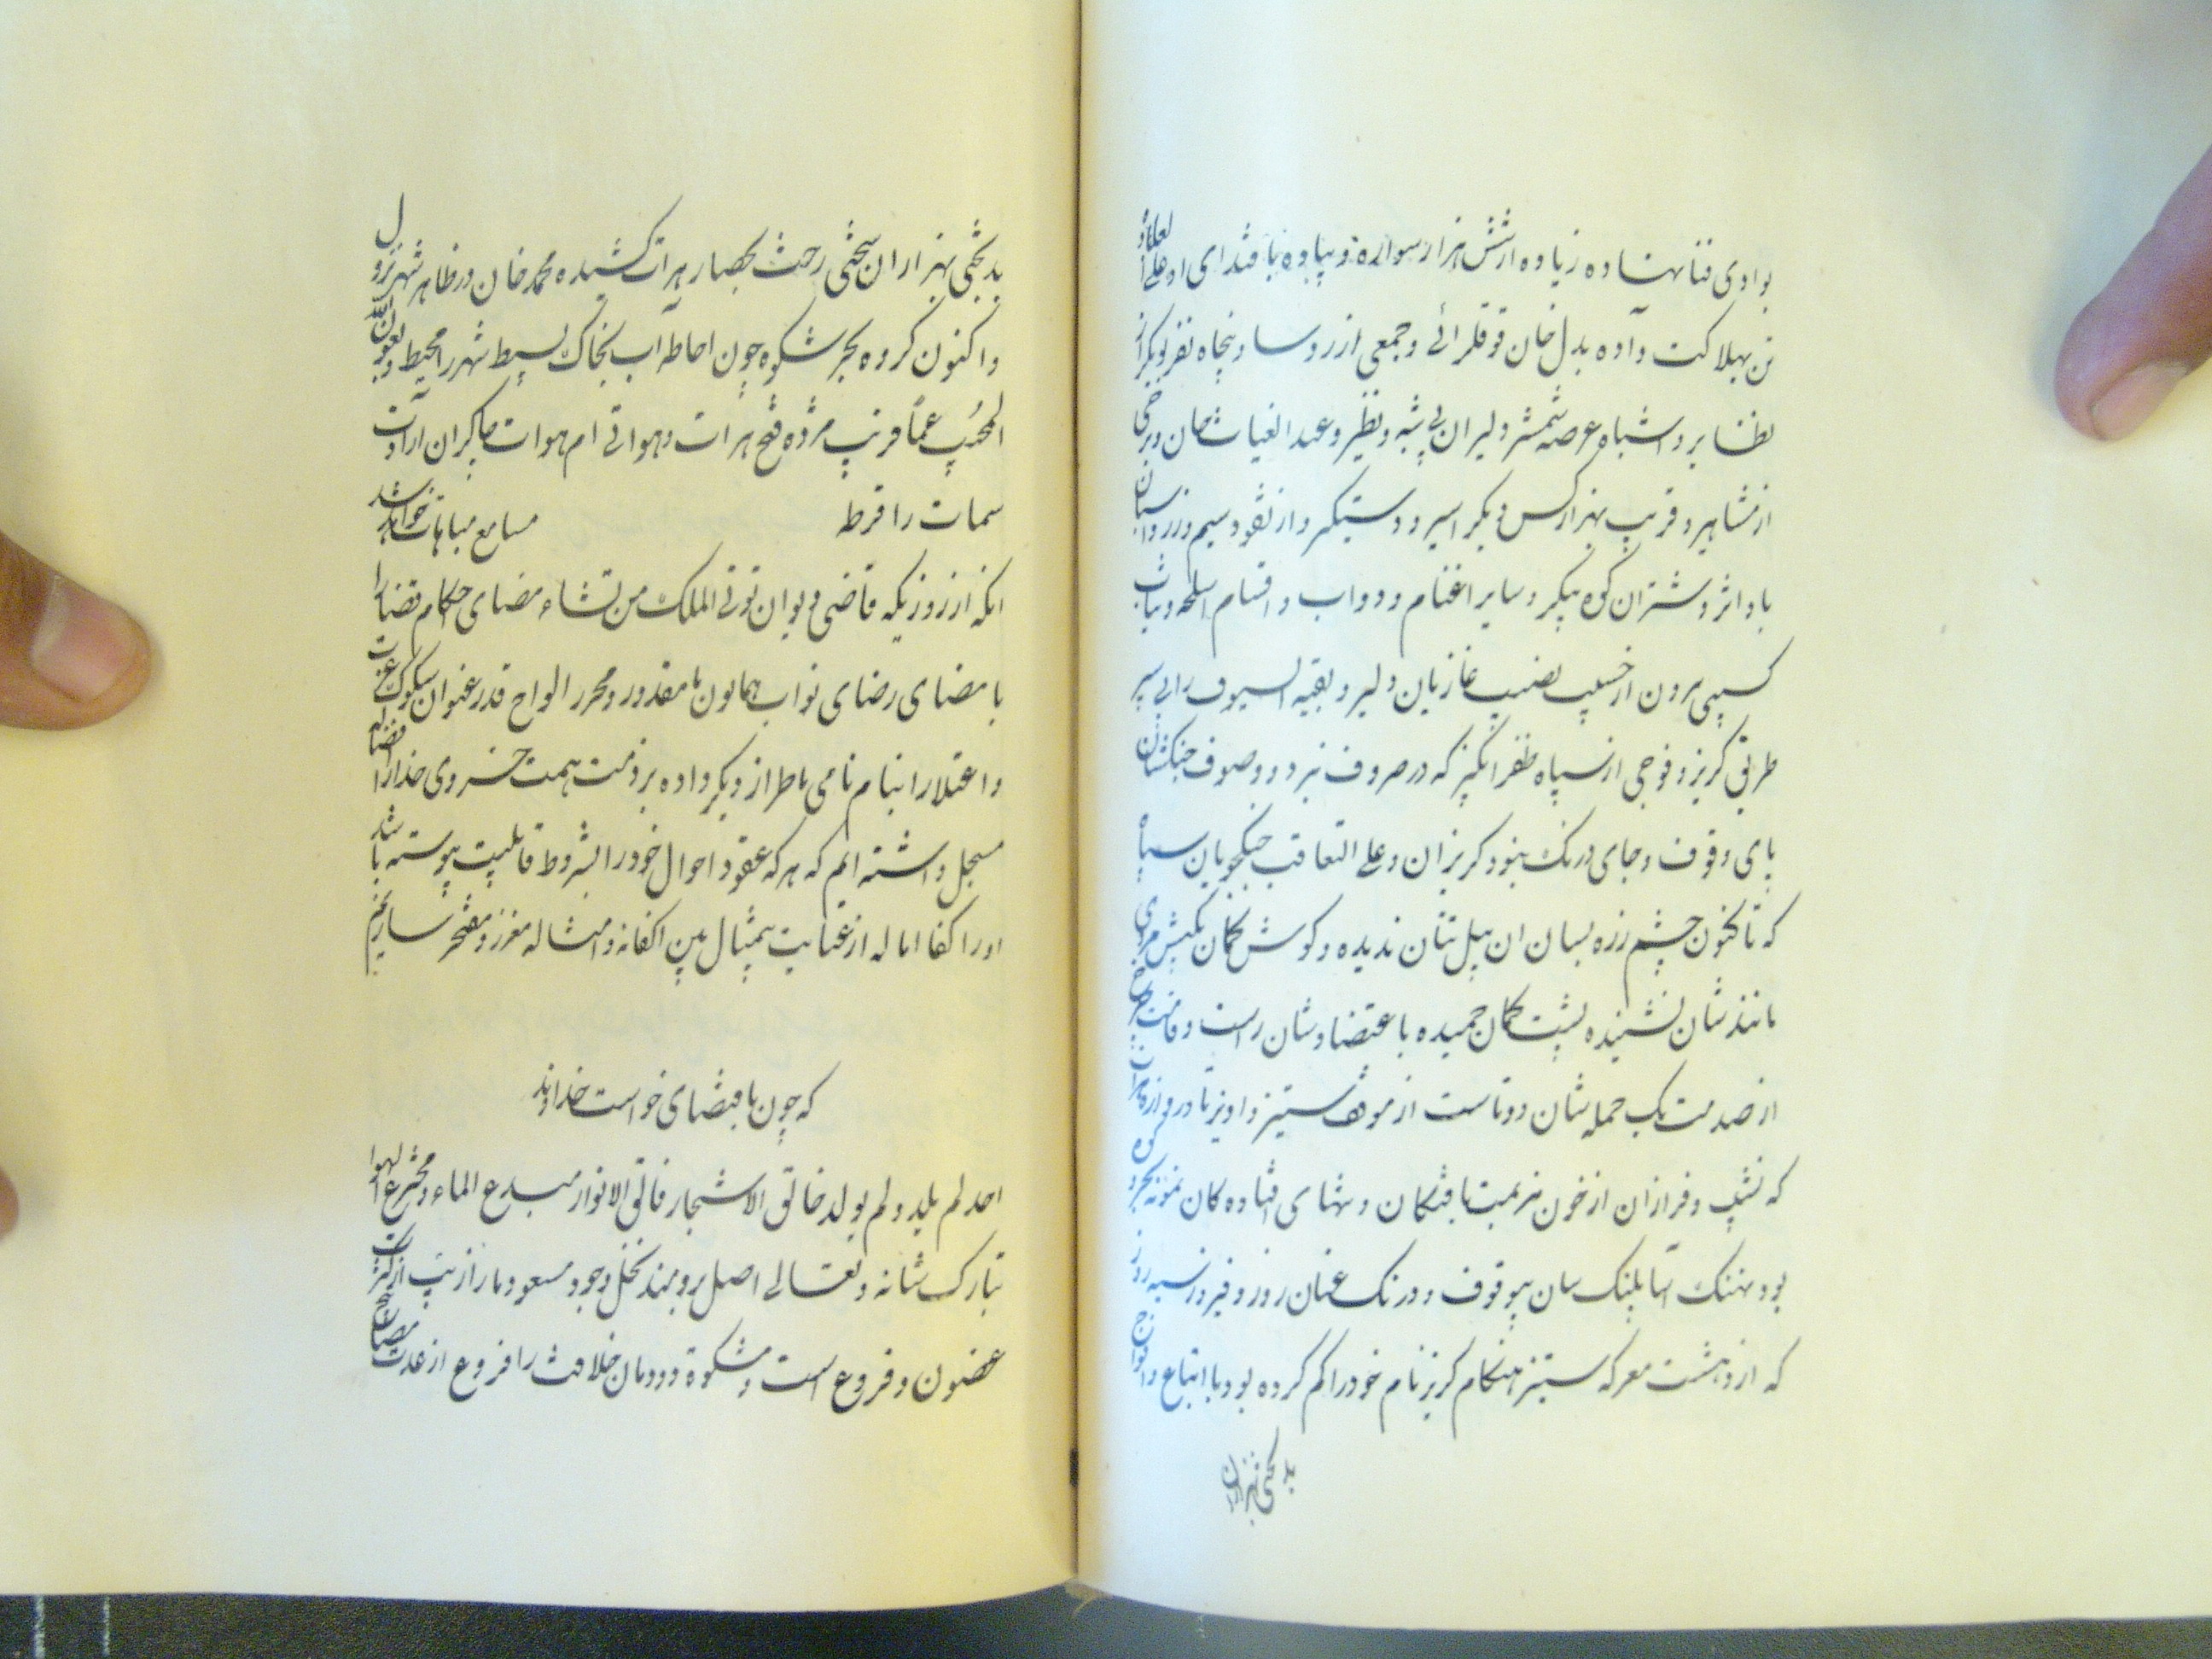 بوادی فنا نهاده زیاده از شش هزار سواره و پیاده باقتدای او علی
تن بهلاکت داده بدل خان و جمعی از روسا و پنجاه نفر دیگر از
نظایر و اشباه عرصه شمشیر دلیران بی شبه و نظیر و عبد الغیاث خان و برخی
از مشاهیر و قریب بهزار کس دیگر اسیر و دستگیر و از نقود سیم و زر و اسبان
باد اثر و شتران کوه پیکر و سایر اغنام و دواب و اقسام اسلحه و ثیاب
کسیبی برون از حسیب نصیب غازیان دلیر و بقیه السیوف را بی سپر
طریق گریز و فوجی از سپاه ظفر انگیز که در صروف نبرد و وصوف جنکشان
پای وقوف و جای درنک نبود گریزان و علی التعاقب جنکجویان سپاه
که تاکنون چشم زره بسان ان پیل تنان ندیده و گوش کمان بکیش مردی
مانندشان نشنیده پشت کمان خمیده باعتضادشان راست و قامت
از صدمت یک حمله شان دوتاست از موقف ستیز و اویز تا دروازه هرات
که نشیب و فراز ان از خون هزیمت یافتکان و تنهای افتاده کان نمونه بحر و کوه
بود نهنک اسا پلنک سان بیوقوف و درنک عنان ریز و فیروز سیه روز
که از دهشت معرکه ستیز هنکام گریز نام خود را گم کرده بود با اتباع و افواج
بدبختی بهزاران
بدبختی بهزاران سختی رخت بحصار هرات کشیده محمد خان در ظاهر شهر نزول
و اکنون گروه بحر شکوه چون احاطه آب بخاک بسیط شهر را محیط و بعون الله
المجیب عما قریب مژده فتح هرات و هوای ام هوات چاکران ارادت
سمات را قرطه مسامع مباهات خواهد شد
انکه از روزیکه قاضی دیوان تؤتی الملک من تشاء مضای احکام قضا را
بامضای رضای نواب همایون ما مقدور و محرر الواح قدر عنوان سکوک عزت
و اعتلا را بنام نامی ما طراز دیگر داده بر ذمت همت خسروی
مسجل داشته ایم که هر که عقود احوال خود را بشروط قابلیت پیوسته باشد
او را کفا اماله از عنایت بیمثال بین اکفانه و امثاله معزز و مفتخر سازیم
که چون باقتضای خواست خداوند
احد لم یلد و لم یولد خالق الاشجار فالق الانوار مبدع الماء و مخترع الهوا
تبارک شانه و تعالی اصل برومند نخل وجود مسعود ما را زیب از کثرت
غصون و فروع است و مشکوة دودمان خلافت را فروغ از عدت مصابیح